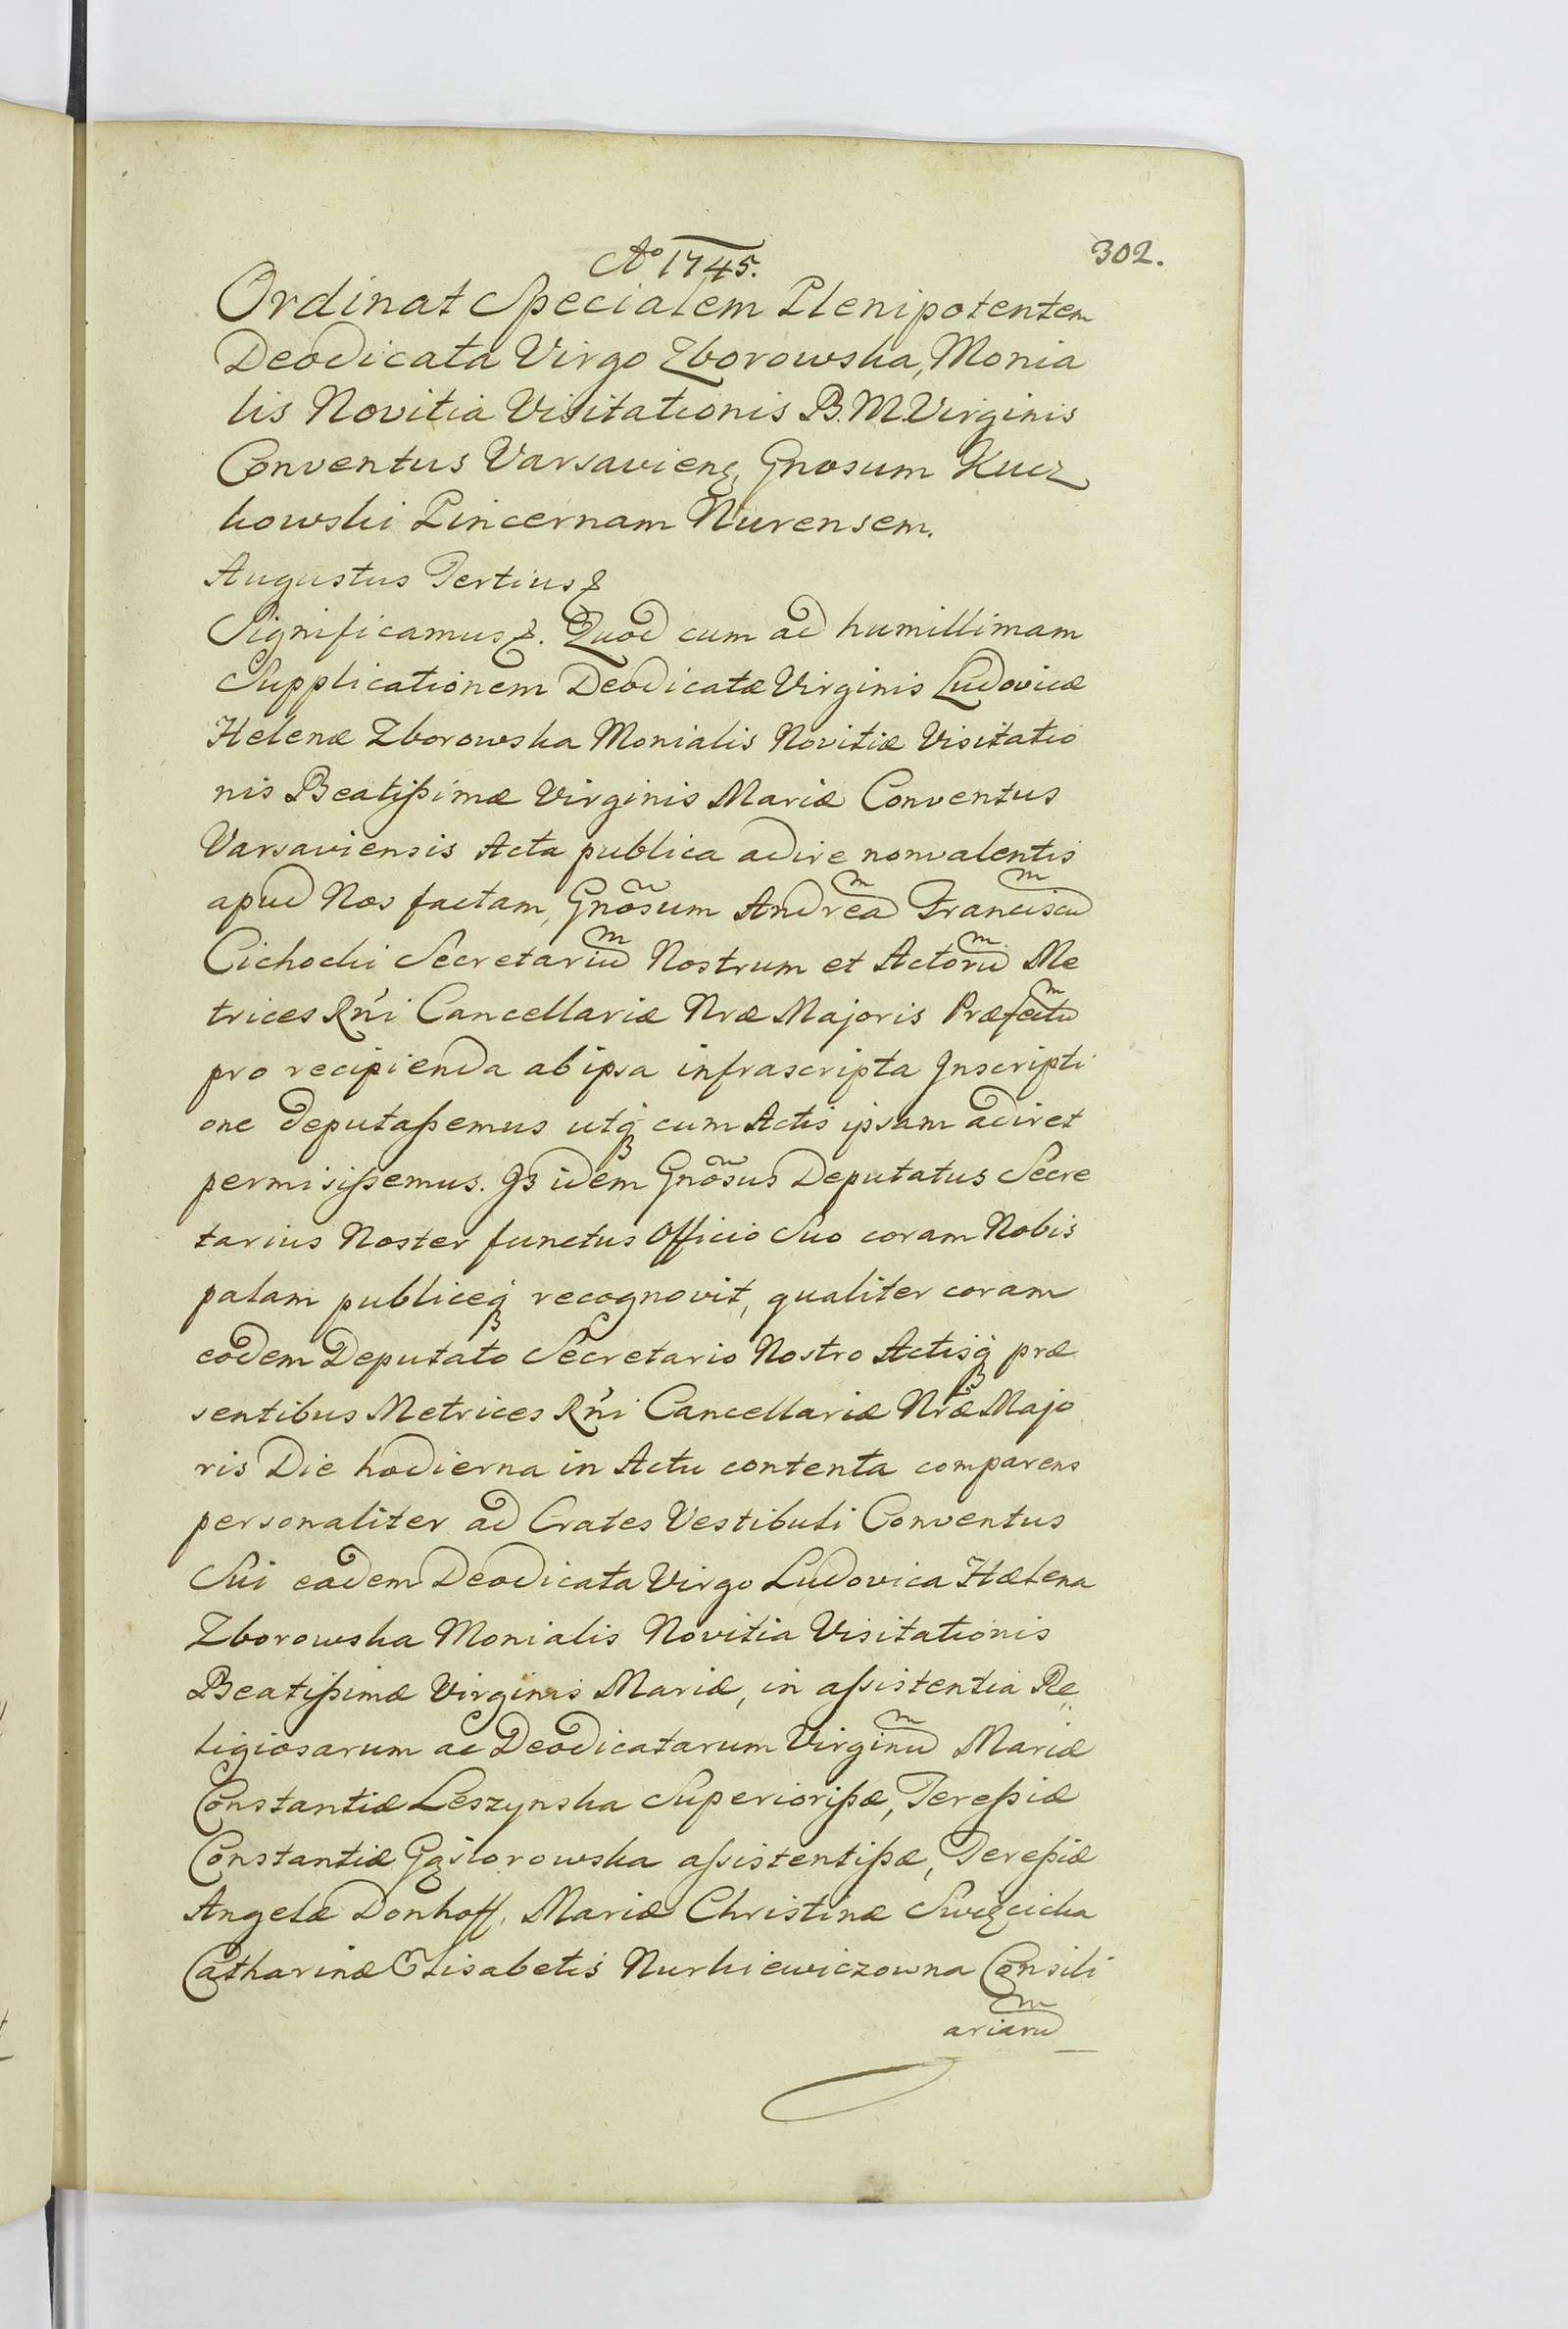 Aº 1745.
302.
Ordinat Specialem Plenipotentem
Deodicata Virgo Zborowska, Monia
lis Novitia Visitationis B. M. Virginis
Conventus Varsavieñ, Gnosum Kucz
kowski Pincernam Nurensem.
Augustus Tertius &
Significamus &. Quod cum ad humillimam
Supplicationem Deodicatæ Virginis Ludovicæ
Helenæ Zborowska Monialis Novitiæ Visitatio
nis Beatißimæ Virginis Mariæ Conventus
Varsaviensis Acta publica adire nonvalentis
apud Nos factam, Gnõsum Andream Franciscum
Cichocki Secretarium Nostrum et Actorum Me
trices Rni Cancellariæ Nræ Majoris Præfectum
pro recipienda ab ipsa infrascripta Inscripti
one deputaßemus utqꝫ cum Actis ipsam adiret
permisißemus. Iꝫ idem Gnõsus Deputatus Secre
tarius Noster functus Officio Suo coram Nobis
palam publiceqꝫ recognovit, qualiter coram
eodem Deputato Secretario Nostro Actisqꝫ præ
sentibus Metrices Rni Cancellariæ Nræ Majo
ris Die hodierna in Actu contenta comparens
personaliter ad Crates Vestibuli Conventus
Sui eadem Deodicata Virgo Ludovica Hælena
Zborowska Monialis Novitia Visitationis
Beatißimæ Virginis Mariæ, in aßistentia Re„
ligiosarum ac Deodicatarum Virginum Mariæ
Constantiæ Leszynska Superiorißæ, Tereßiæ
Constantiæ Gąsiorowska aßistentißæ, Tereßiæ
Angelæ Donhoff, Mariæ Christinæ Swięcicka
Catharinæ Elisabetis Nurkiewiczowna Consili
ariarum